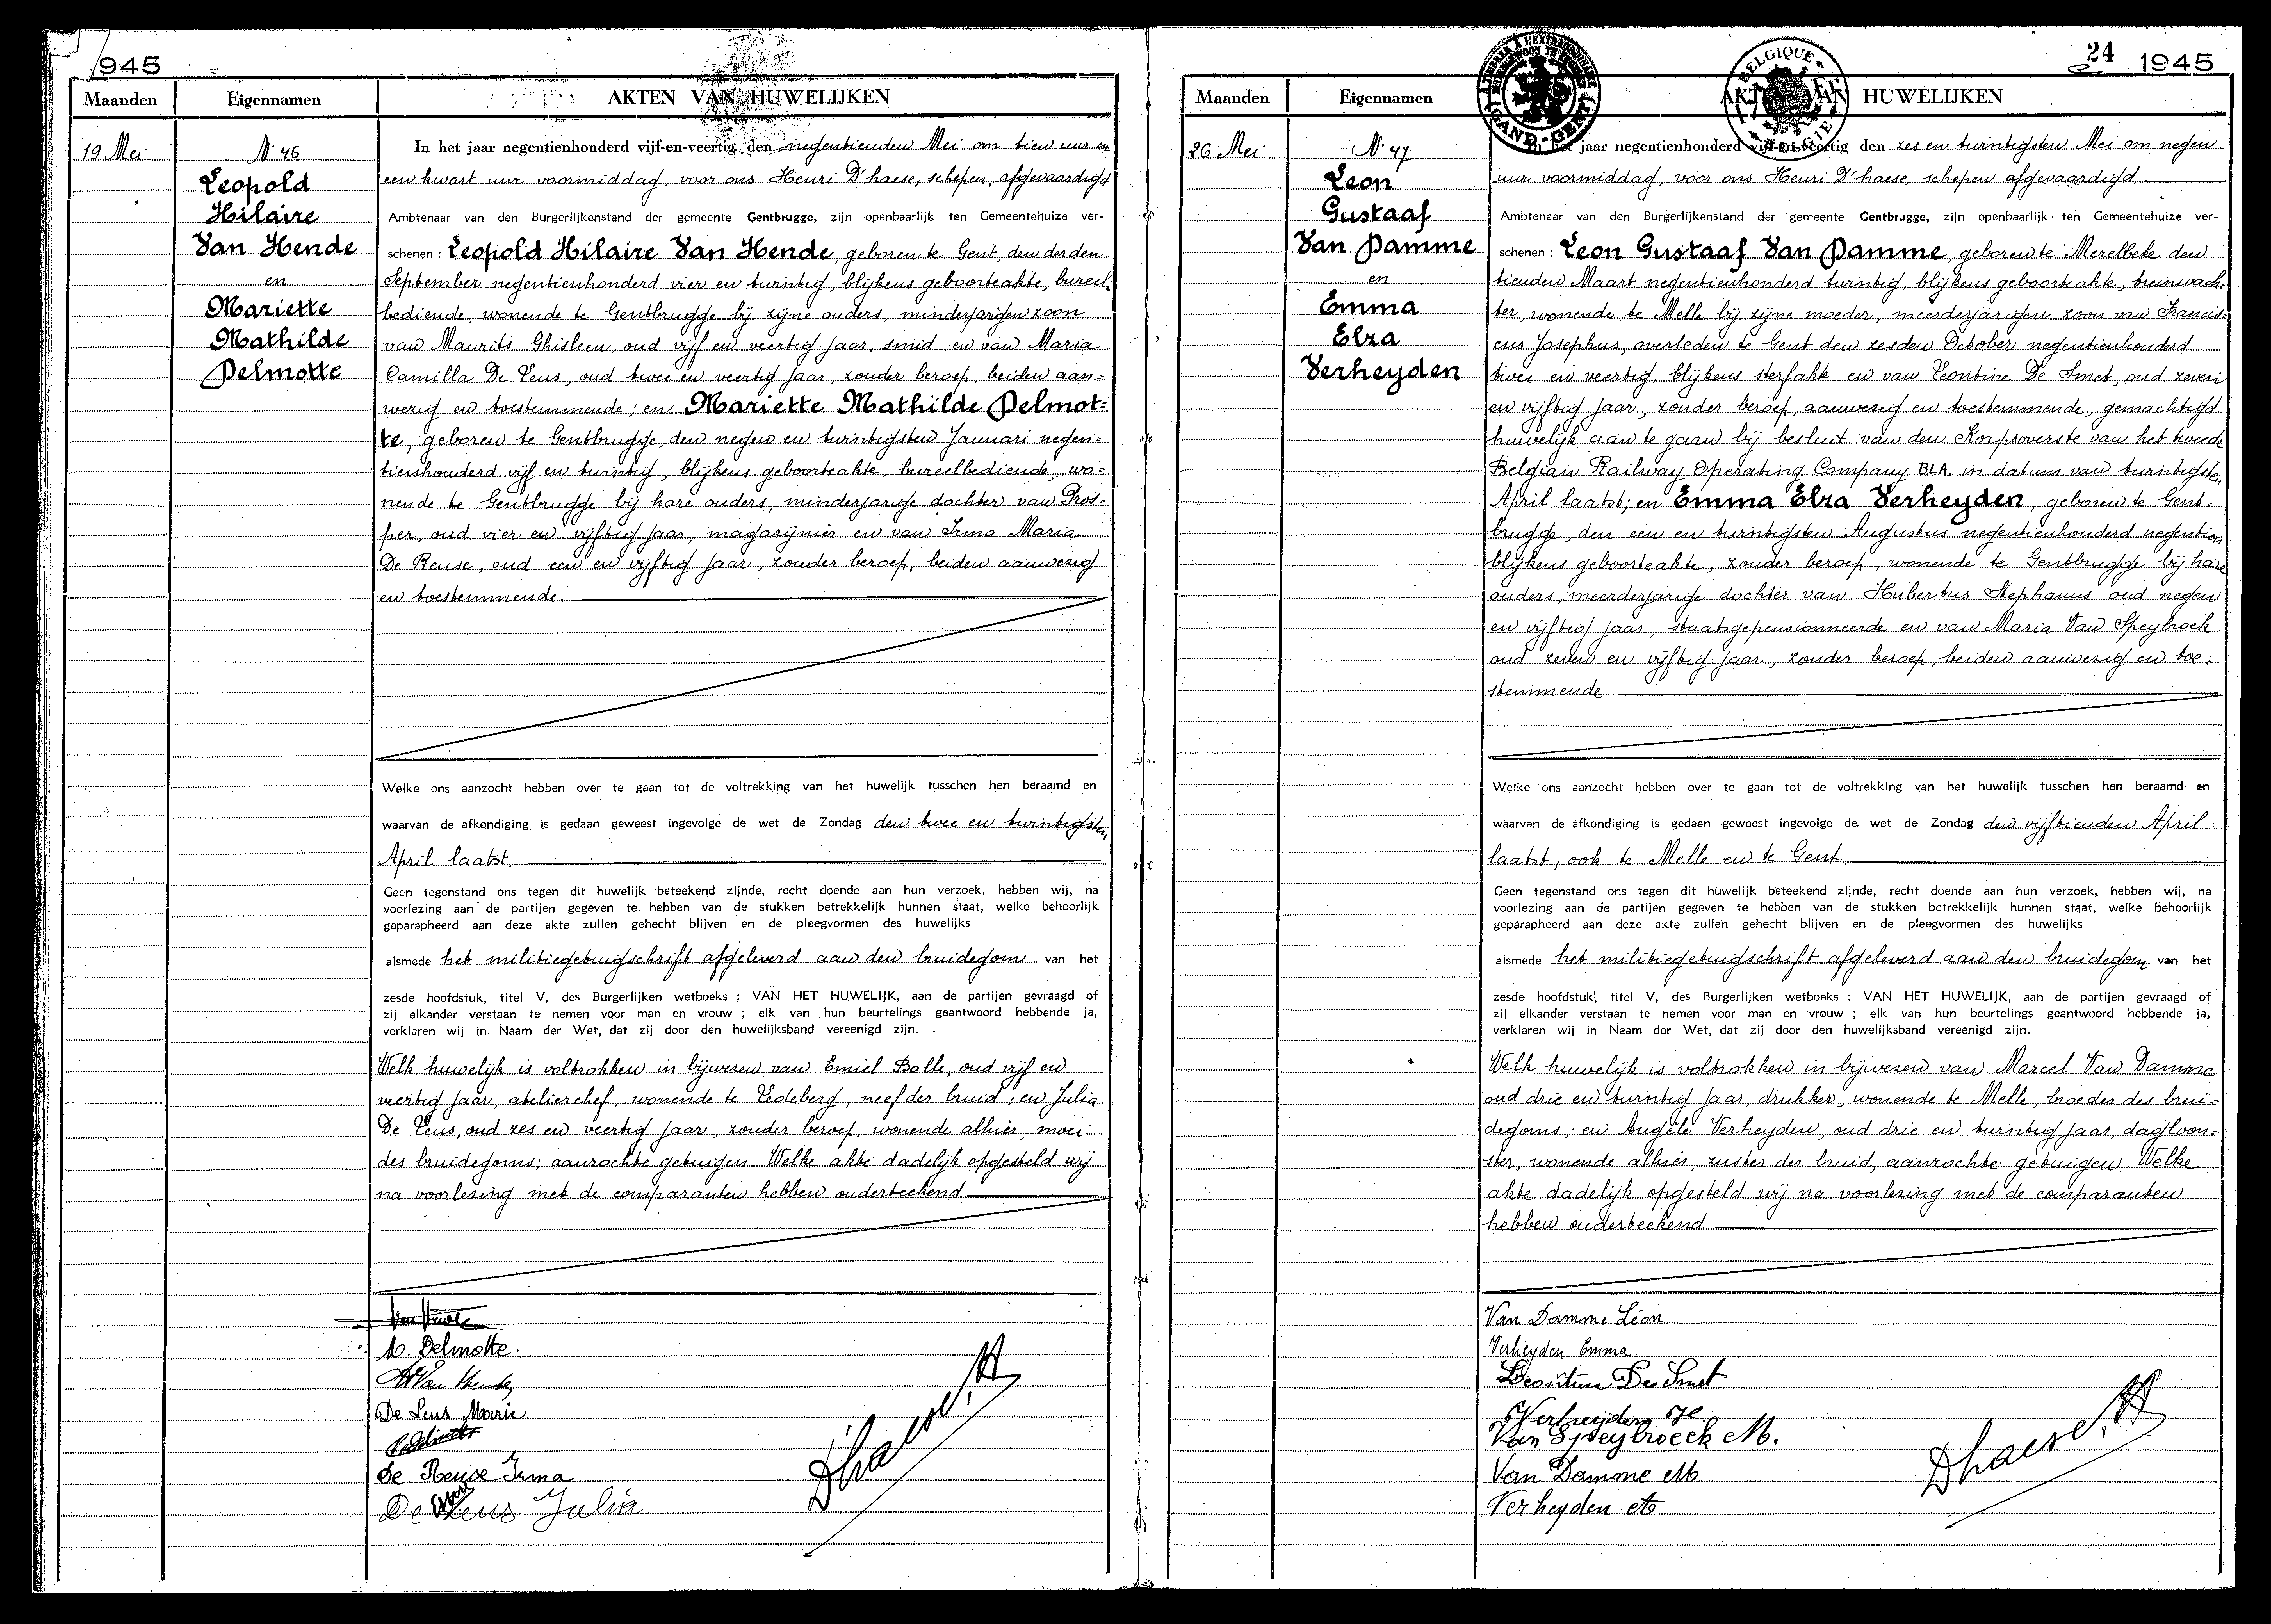 1945
Maanden
Eigennamen
AKTEN VAN HUWELIJKEN
19 Mei
N. 46
Leopold
Hilaire
Van Hende
en
Mariette
Mathilde
Delmotte
In het jaar negentienhonderd vijf-en-veertig, den negentienden Mei om tien uur en
een kwart uur voormiddag, voor ons Henri D'haese, schepen, afgevaardigd
Ambtenaar van den Burgerlijkenstand der gemeente Gentbrugge, zijn openbaarlijk ten Gemeentehuize ver-
schenen : Leopold Hilaire Van Hende, geboren te Gent, den derden
September negentienhonderd vier en twintig, blijkens geboorteakte, bureel-
bediende, wonende te Gentbrugge bij zijne ouders, minderjarigen zoon
van Maurits Ghisleen, oud vijf en veertig jaar, smid en van Maria
Camilla De Leus, oud twee en veertig jaar, zonder beroep, beiden aan=
wezig en toestemmende; en Mariette Mathilde Delmot=
te, geboren te Gentbrugge, den negen en twintigsten Januari negen=
tienhonderd vijf en twintig, blijkens geboorteakte, bureelbediende, wo=
nende te Gentbrugge bij hare ouders, minderjarige dochter van Pros=
per, oud vier en vijftig jaar, magazijnier en van Irma Maria
De Reuse, oud een en vijftig jaar, zonder beroep, beiden aanwezig
en toestemmende.
Welke ons aanzocht hebben over te gaan tot de voltrekking van het huwelijk tusschen hen beraamd en
waarvan de afkondiging is gedaan geweest ingevolge de wet de Zondag den twee en twintigsten
April laatst.
Geen tegenstand ons tegen dit huwelijk beteekend zijnde, recht doende aan hun verzoek, hebben wij, na
voorlezing aan de partijen gegeven te hebben van de stukken betrekkelijk hunnen staat, welke behoorlijk
geparapheerd aan deze akte zullen gehecht blijven en de pleegvormen des huwelijks
alsmede het militiegetuigschrift afgeleverd aan den bruidegom van het
zesde hoofdstuk, titel V, des Burgerlijken wetboeks : VAN HET HUWELIJK, aan de partijen gevraagd of
zij elkander verstaan te nemen voor man en vrouw ; elk van hun beurtelings geantwoord hebbende ja,
verklaren wij in Naam der Wet, dat zij door den huwelijksband vereenigd zijn.
Welk huwelijk is voltrokken in bijwezen van Emiel Bolle, oud vijf en
veertig jaar, atelierchef, wonende te Ledeberg, neef der bruid; en Julia
De Leus, oud zes en veertig jaar, zonder beroep, wonende alhier, moei
des bruidegoms; aanzochte getuigen. Welke akte dadelijk opgesteld wij
na voorlezing met de comparanten hebben onderteekend
Van Hende
M. Delmotte.
Van Hende
De Leus Marie
Delmotte
De Reuse Irma
De Leus Julia
D'haese, H
24
1945
ATELIER A L'EXTRAORDINAIRE
(GAND-GENT)
BELGIQUE
BELGIE
Maanden
Eigennamen
AKTEN VAN HUWELIJKEN
26 Mei
N. 47
Leon
Gustaaf
Van Damme
en
Emma
Elza
Verheyden
In het jaar negentienhonderd vijf-en-veertig den zes en twintigsten Mei om negen
uur voormiddag, voor ons Henri D'haese, schepen afgevaardigd
Ambtenaar van den Burgerlijkenstand der gemeente Gentbrugge, zijn openbaarlijk ten Gemeentehuize ver-
schenen : Leon Gustaaf Van Damme, geboren te Merelbeke den
tienden Maart negentienhonderd twintig, blijkens geboorteakte, treinwach-
ter, wonende te Melle bij zijne moeder, meerderjarigen zoon van Francis-
cus Josephus, overleden te Gent den zesden October negentienhonderd
twee en veertig, blijkens sterfakte en van Leontine De Smet, oud zeven
en vijftig jaar, zonder beroep, aanwezig en toestemmende, gemachtigd
huwelijk aan te gaan bij besluit van den Korpsoverste van het tweede
Belgian Railway Operating Company BLA. in datum van twintigsten
April laatst; en Emma Elza Verheyden, geboren te Gent-
brugge, den een en twintigsten Augustus negentienhonderd negentien
blijkens geboorteakte, zonder beroep, wonende te Gentbrugge bij hare
ouders, meerderjarige dochter van Hubertus Stephanus oud negen
en vijftig jaar, staatsgepensionneerde en van Maria Van Speybroek
oud zeven en vijftig jaar, zonder beroep, beiden aanwezig en toe-
stemmende
Welke ons aanzocht hebben over te gaan tot de voltrekking van het huwelijk tusschen hen beraamd en
waarvan de afkondiging is gedaan geweest ingevolge de wet de Zondag den vijftienden April
laatst, ook te Melle en te Gent.
Geen tegenstand ons tegen dit huwelijk beteekend zijnde, recht doende aan hun verzoek, hebben wij, na
voorlezing aan de partijen gegeven te hebben van de stukken betrekkelijk hunnen staat, welke behoorlijk
geparapheerd aan deze akte zullen gehecht blijven en de pleegvormen des huwelijks
alsmede het militiegetuigschrift afgeleverd aan den bruidegom van het
zesde hoofdstuk, titel V, des Burgerlijken wetboeks : VAN HET HUWELIJK, aan de partijen gevraagd of
zij elkander verstaan te nemen voor man en vrouw ; elk van hun beurtelings geantwoord hebbende ja,
verklaren wij in Naam der Wet, dat zij door den huwelijksband vereenigd zijn.
Welk huwelijk is voltrokken in bijwezen van Marcel Van Damme
oud drie en twintig jaar, drukker, wonende te Melle, broeder des brui-
degoms; en Angèle Verheyden, oud drie en twintig jaar, dagloon-
ster, wonende alhier, zuster der bruid, aanzochte getuigen. Welke
akte dadelijk opgesteld wij na voorlezing met de comparanten
hebben onderteekend.
Van Damme Léon
Verheyden Emma
Leontine De Smet
Verheyden H
Van Speybroeck M.
Van Damme M
Verheyden A
Dhaese, H